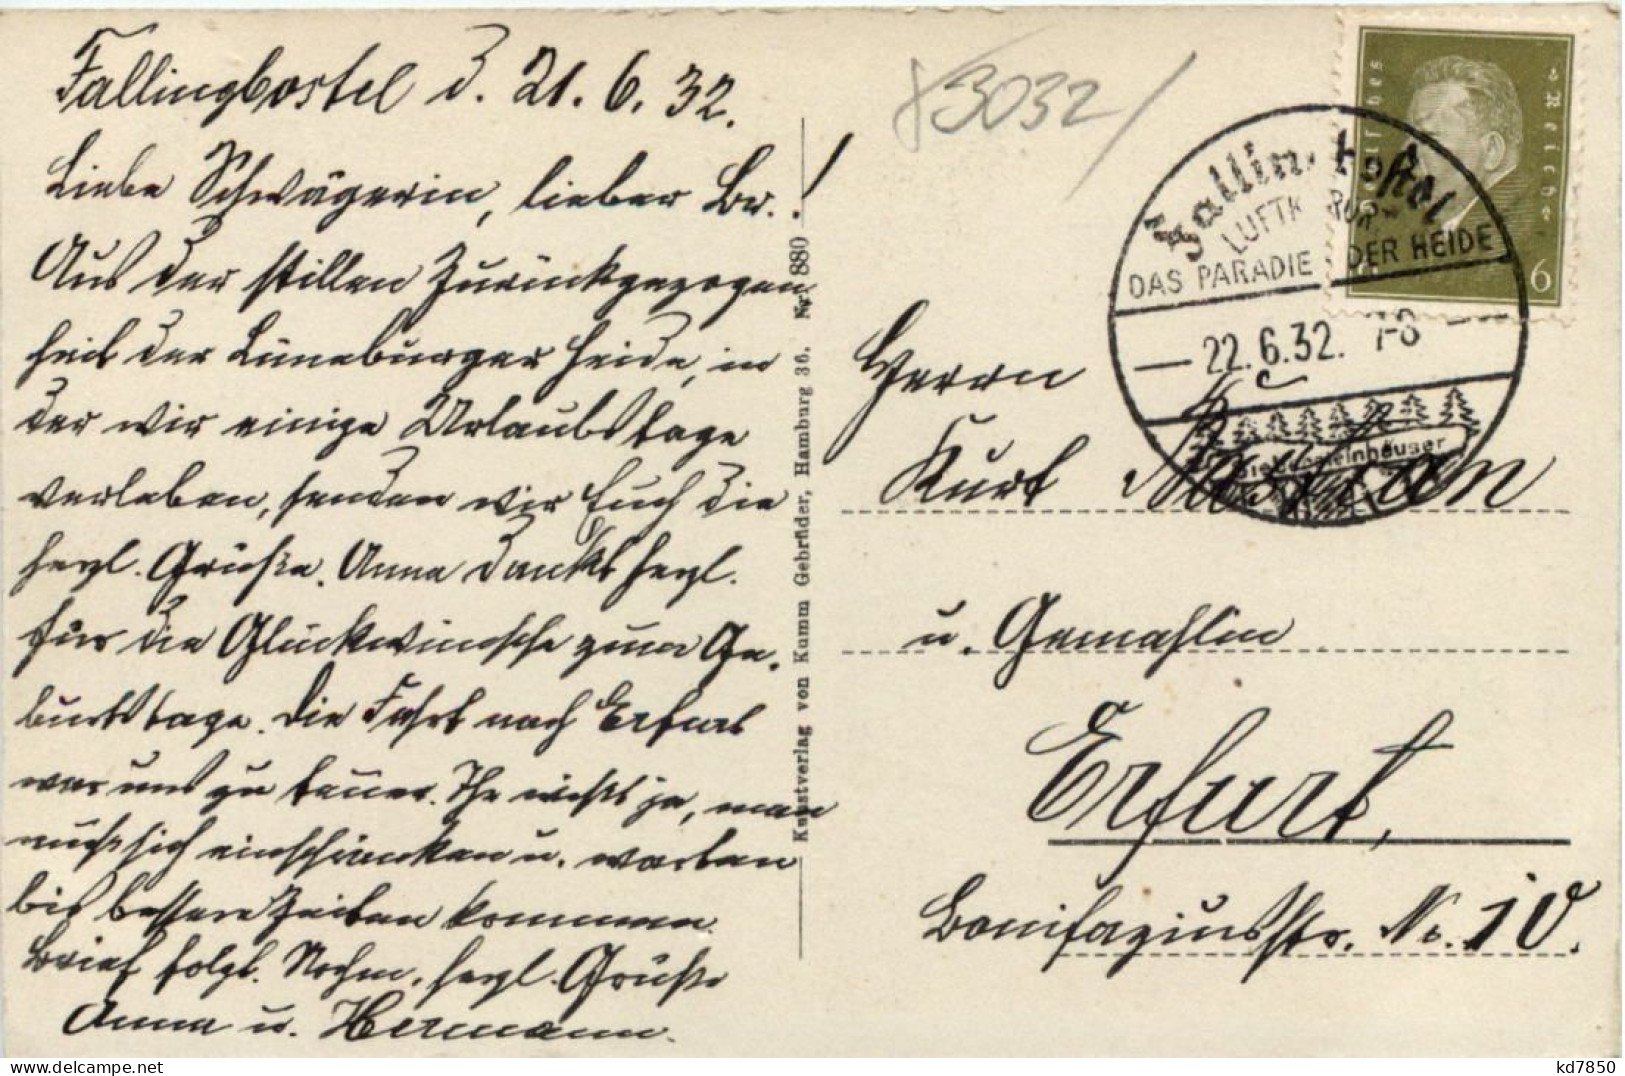 Fallingbostel d. 21.6.32.
Liebe Schwägerin, lieber Br.!
Aus der stillen Zurückgezogen
heit der Lüneburger Heide, in
der wir einige Urlaubstage
verleben, senden wir Euch die
herzl. Grüße. Anna dankt herzl.
für die Glückwünsche zum Ge-
burtstage. Die Fahrt nach Erfurt
war uns zu teuer. Ihr wißt ja, man
muß sich einschränken u. warten
bis bessere Zeiten kommen.
Brief folgt. Nochm. herzl. Grüße
Anna u. Hermann.
Kunstverlag von Kumm Gebrüder, Hamburg 36. Nr. 880
83032
Deutsches Reich
6
Fallingbostel
LUFTKURORT
DAS PARADIES DER HEIDE
22.6.32. 7-8
Herrn
Kurt
u. Gemahlin
Erfurt,
Bonifaziusstr. No. 10.
kd7850